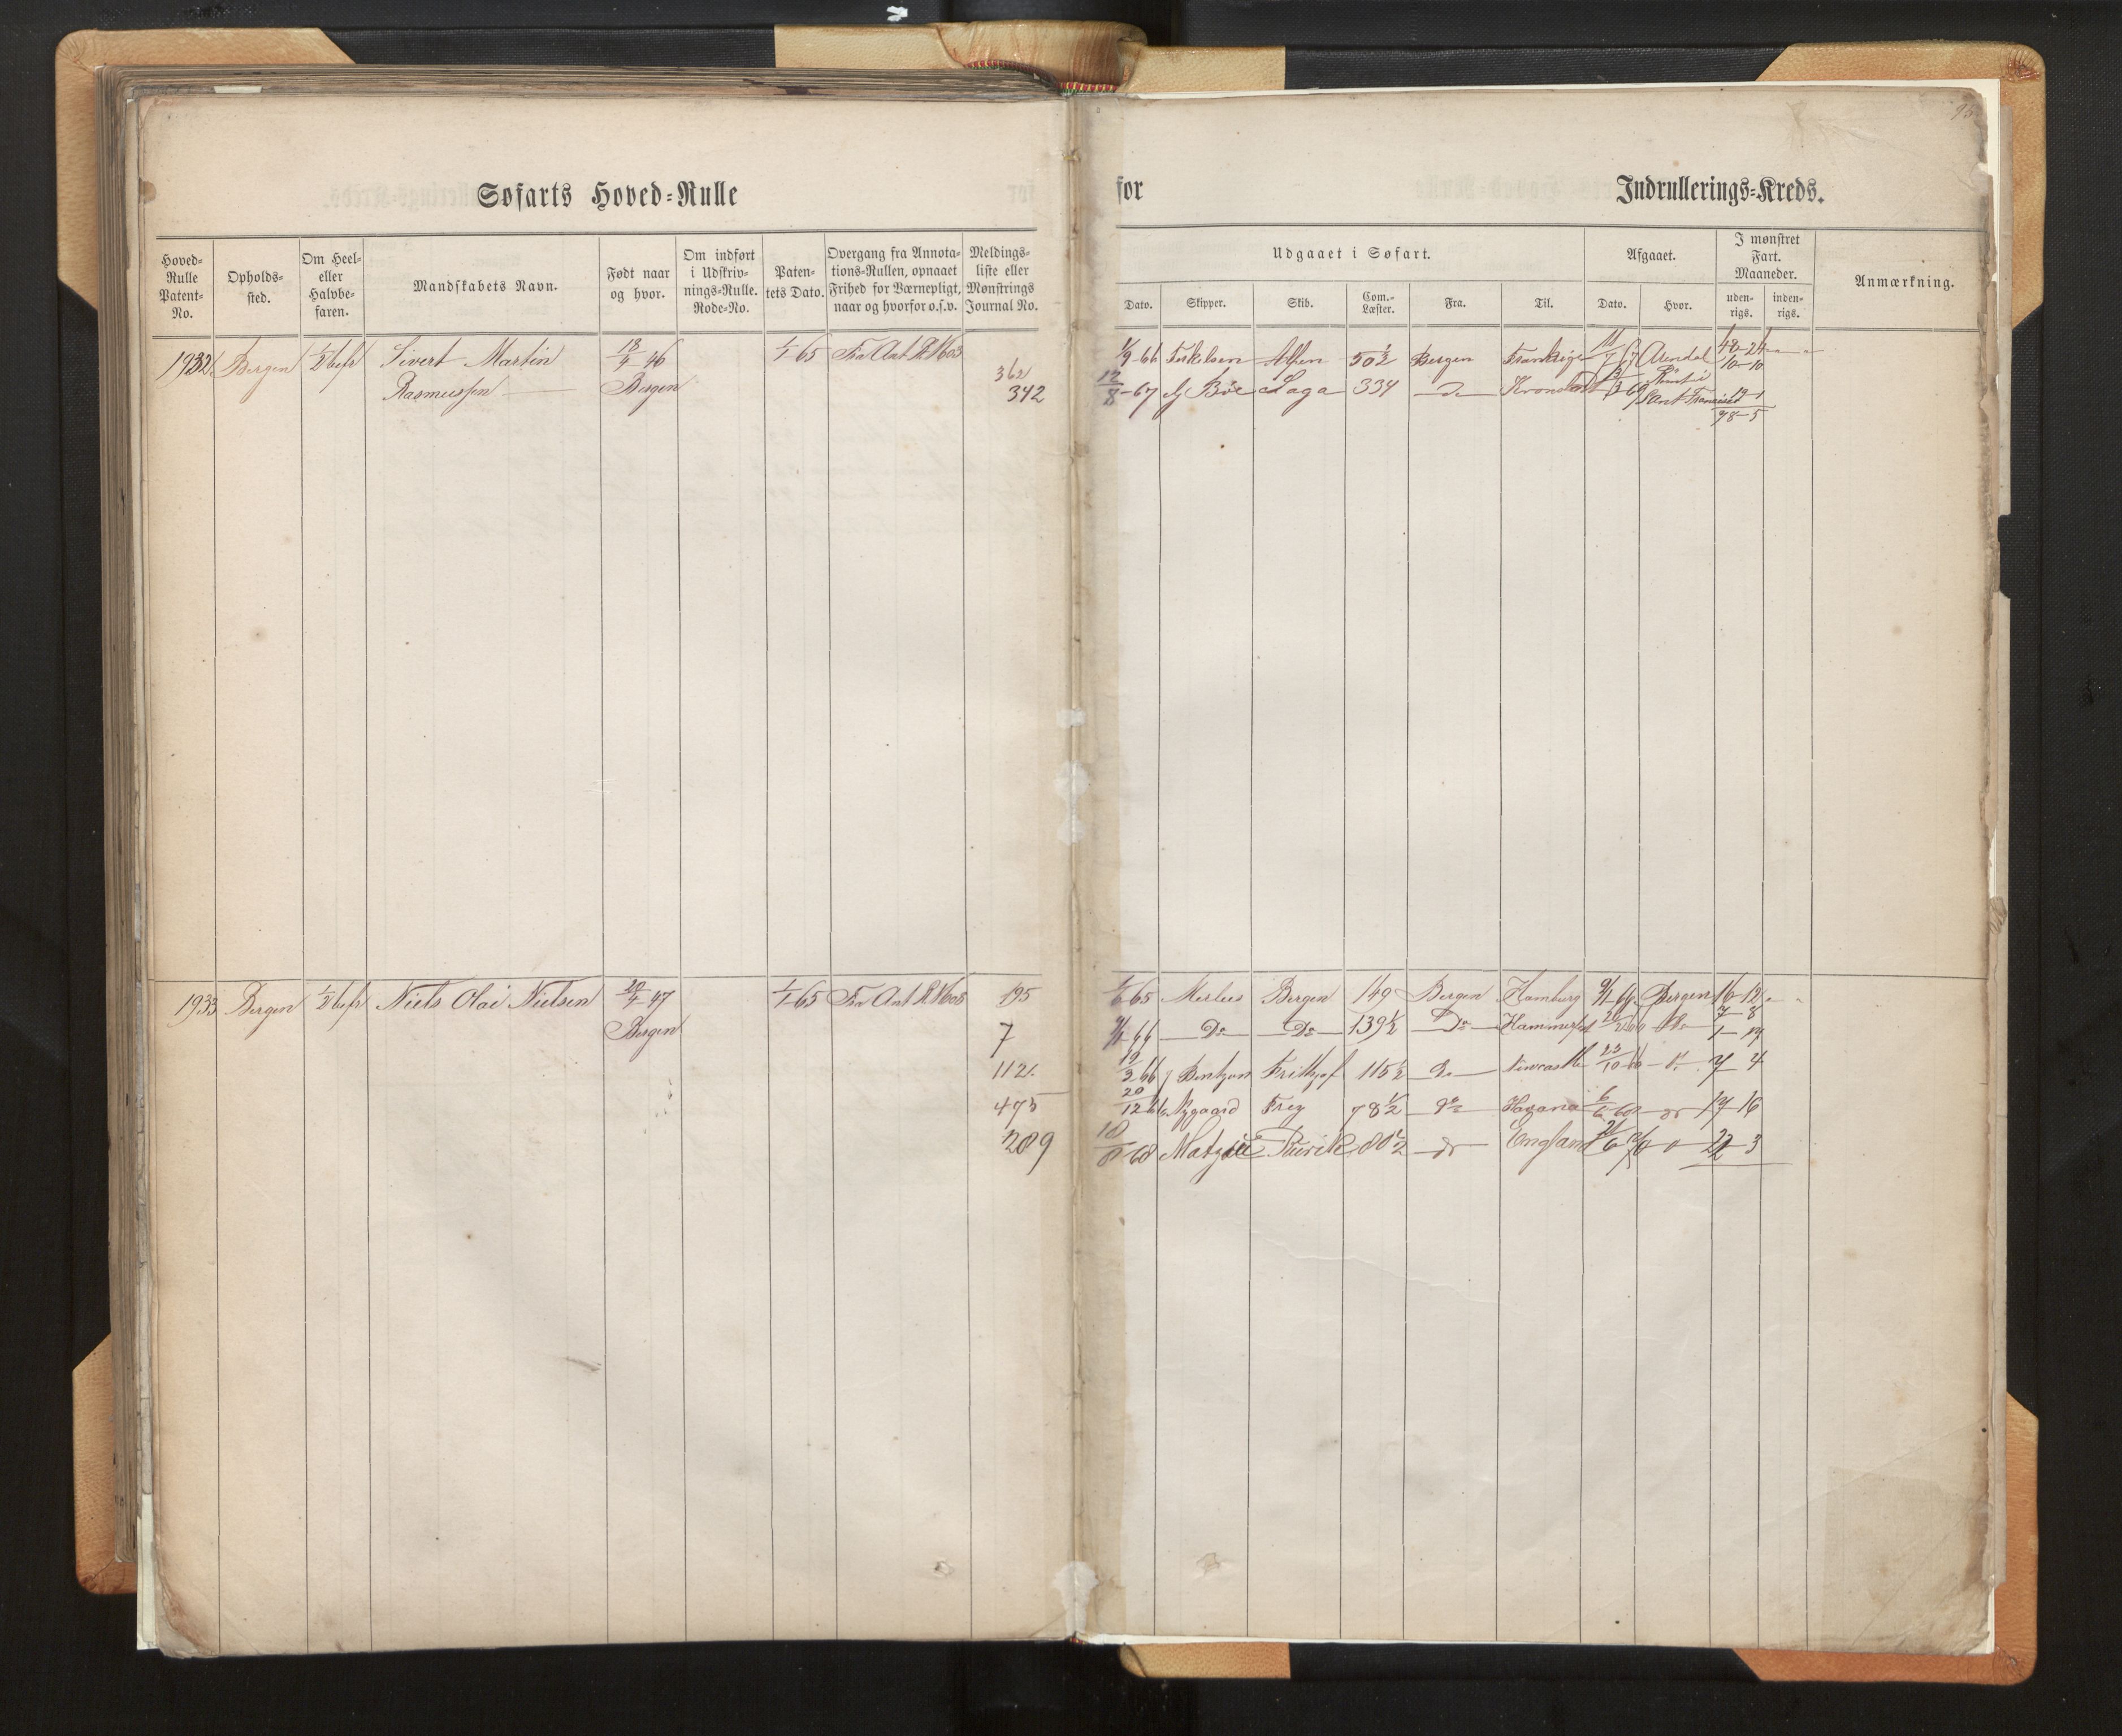 95
Søfarts Hoved-Rulle for Indrullerings-Kreds.
Hoved-Rulle Patent-No.
Opholds-sted.
Om Heel- eller Halvbe-faren.
Mandskabets Navn.
Født naar og hvor.
Om indført i Udskriv-nings-Rulle. Rode-No.
Paten-tets Dato.
Overgang fra Annota-tions-Rullen, opnaaet Frihed for Værnepligt, naar og hvorfor o.s.v.
Meldings-liste eller Mønstrings Journal No.
Udgaaet i Søfart.
Dato. Skipper. Skib. Com.-Læster. Fra. Til.
Afgaaet.
Dato. Hvor.
I mønstret Fart. Maaneder.
uden-rigs. inden-rigs.
Anmærkning.
1932. Bergen ½ befr Sivert Martin 13/4 46 1/1 65 Fra Ant R No 603
Rasmussen Bergen
362 1/9-66 Terkelsen Alfen 50½ Bergen Frankrige 11/7 67 Arendal 48-24
10-10
342 12/8-67 Bøe Saga 334 do Rømt i
Sant Francisco 19-1
78-5
1933 Bergen ½ befr Niels Olai Nielsen 20/4 47 1/1 65 Fra Ant R No 605
Bergen
195 1/6 65 Bergen 149 Bergen Hamburg Bergen 16-12
7-8
7 9/1 66 Do Do 139½ Do Hammerfest Do
112. 19/3 66 Bentzon Frithjof 115½ Do Newcastle 23/10 66 Do 7 4
475 20/12 66 Nygaard Frey 78½ do Havana 6/6 68 do 17-16
289 18/8 68 Rurik 80½ do England 22 3